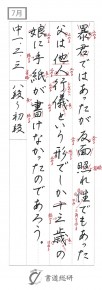 7月
暴君ではあったが反面照れ性でもあった
父は他人行儀という形でしか十三歳の
娘に手紙が書けなかったのであろう。
中一・二・三 八級〜初段
書道総研